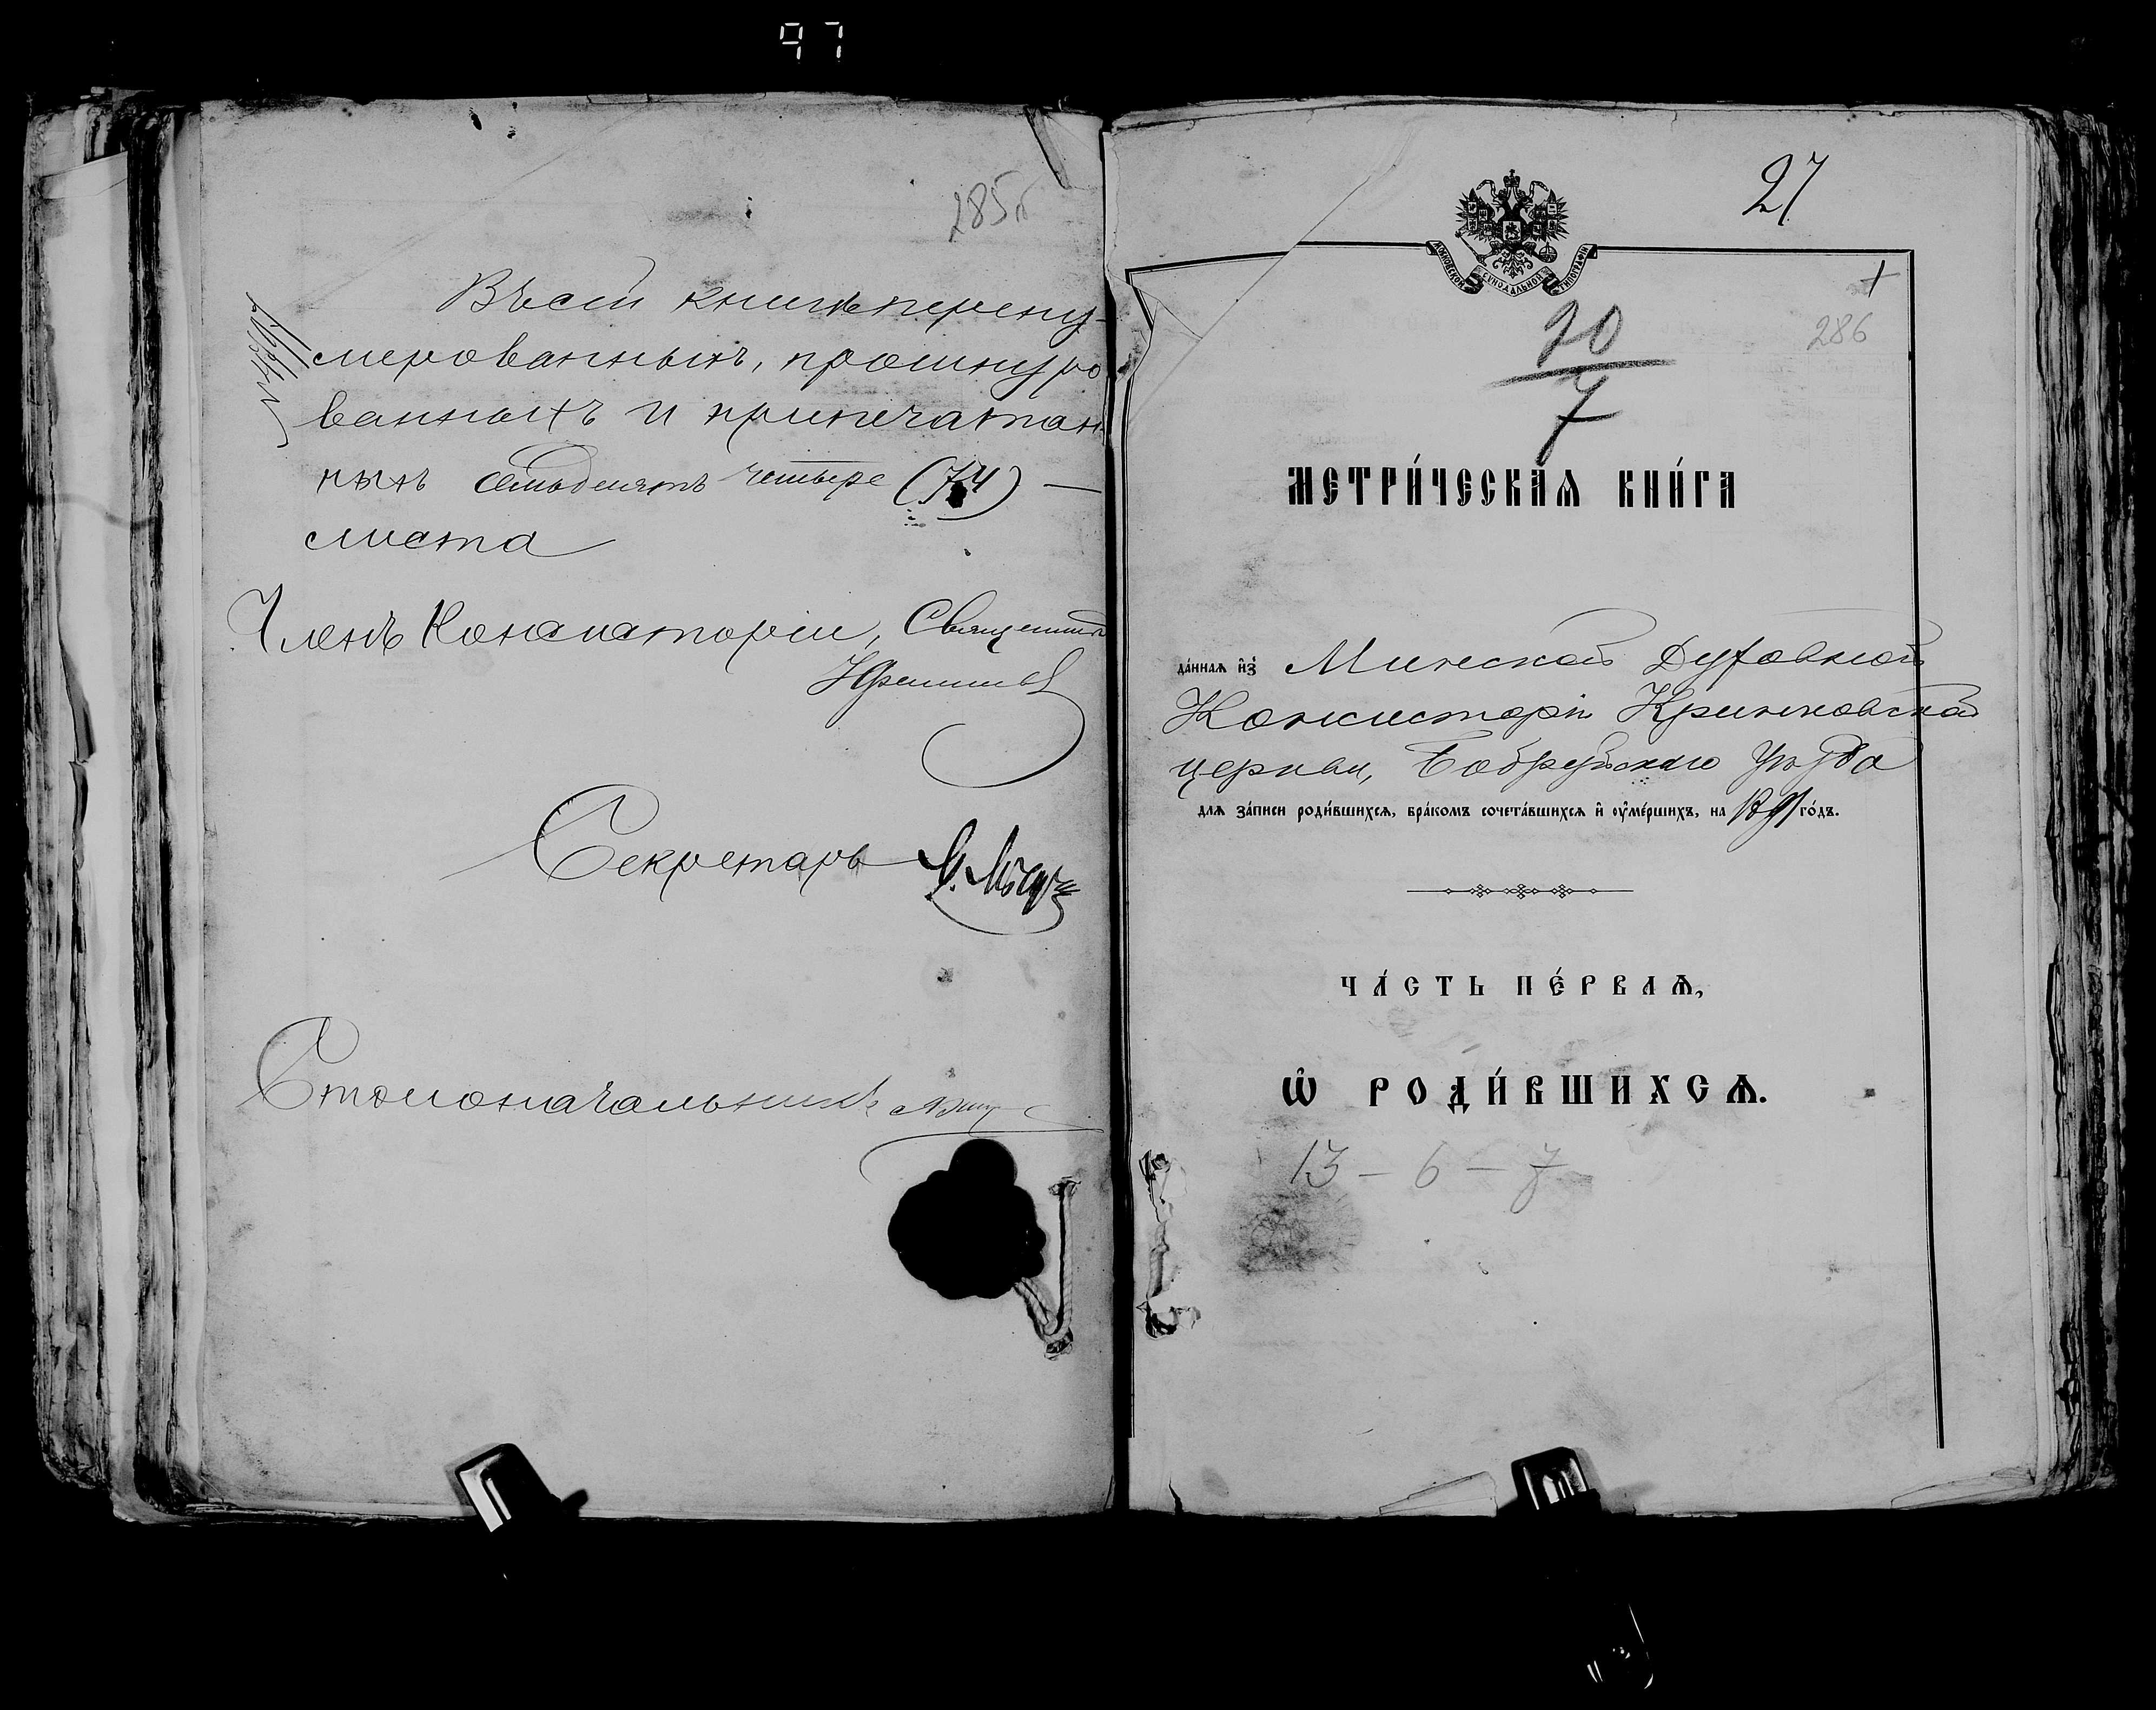 97
285б
Въ сей книгѣ перену-
мерованныхъ, прошнуро
ванныхъ и припечатан
ныхъ семьдесятъ четыре (74) —
листа
Членъ Консисторіи, Священникъ
Секретарь
Столоначальникъ
27
МОСКОВСКОЙ СѴНОДАЛЬНОЙ ТИПОГРАФІИ
286
20
7
МЕТРИ́ЧЕСКАѦ КНИ́ГА
да́ннаѧ и҆з̾ Минской Духовной
Консисторіи Кринковской
церкви, Бобруйскаго уѣзда
длѧ за́писи роди́вшихсѧ, бра́комъ сочета́вшихсѧ и҆ ᲂу҆ме́ршихъ, на 1891 го́дъ.
ЧА́СТЬ ПЕ́РВАѦ,
Ѡ҆ РОДИ́ВШИХСѦ.
13 – 6 – 7